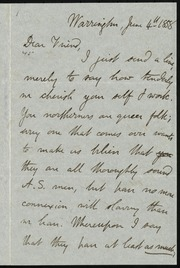 Warrington, June 4th 1858
Dear Friend,
I just send a line
merely to say how tenderly
we cherish your self & work
You northerners are queer folk;
every one that comes over wants
to make us believe that
they are all thoroughly sound
A.S. men, but have no more
connexion with slavery than
we have. Whereupon I say
that they have at least as much,